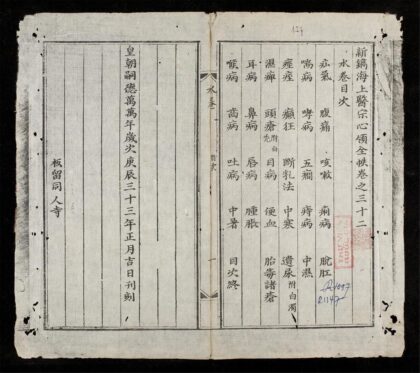 124
新鐫海上醫宗心領全帙卷之三十二
水卷目次
疝氣 腹痛 咳嗽 痢病 脫肛
喘病 哮病 五癇 痔病 中濕
痙痓 癲狂 斷乳法 中寒 遺尿附白濁
濕痺 頭瘡 目病 便血 胎毒諸瘡
耳病 鼻病 唇病 腫脹
喉病 齒病 吐病 中暑 目次終
R.1147
水卷 目次 一
皇朝嗣德萬萬年歲次庚辰三十三年正月吉日刊刻
板留同人寺